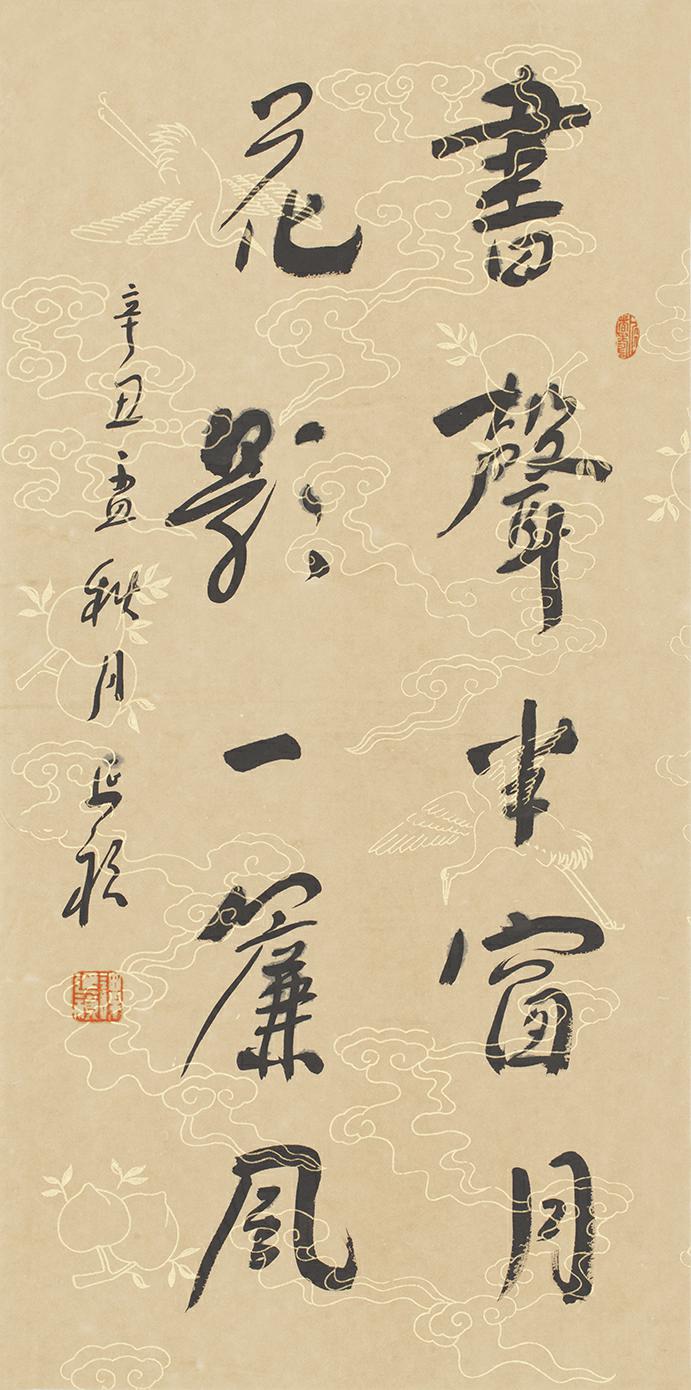 書聲半窗月
花影一簾風
辛丑孟秋月